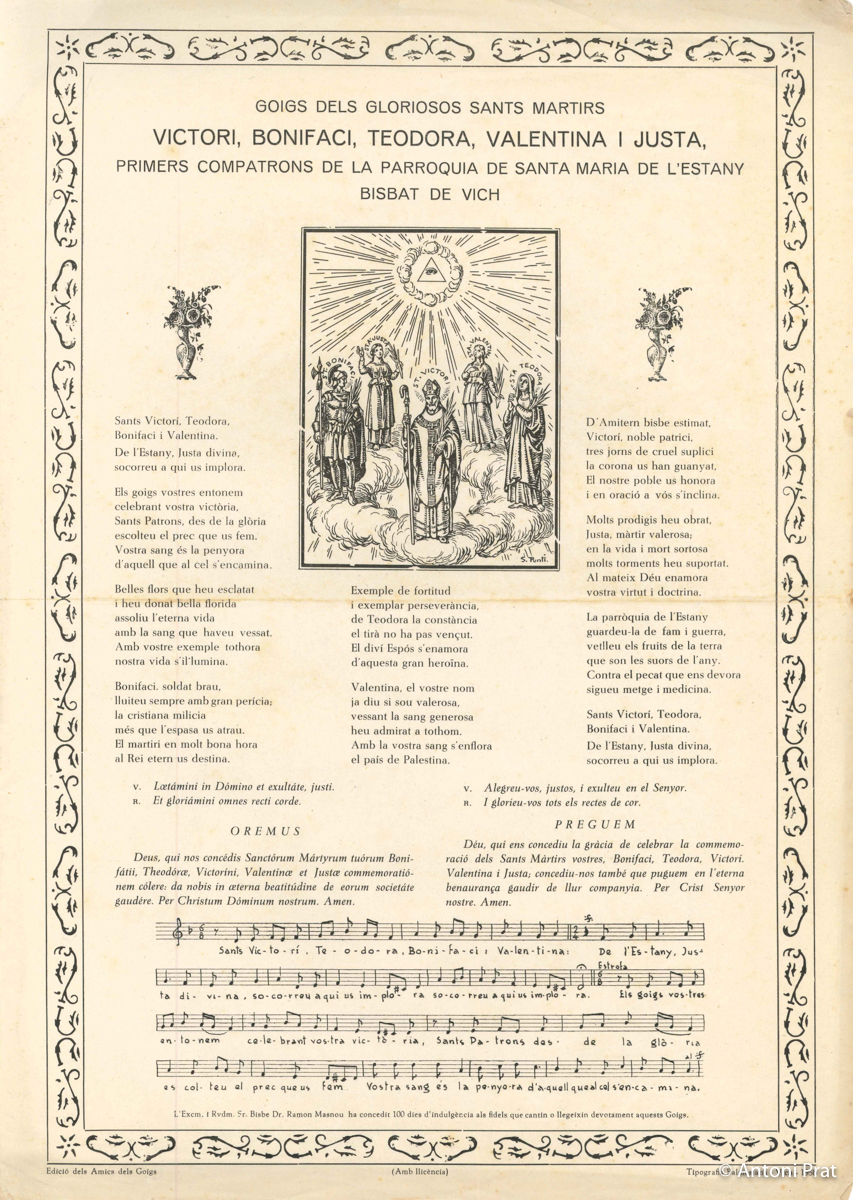 GOIGS DELS GLORIOSOS SANTS MARTIRS
VICTORI, BONIFACI, TEODORA, VALENTINA I JUSTA,
PRIMERS COMPATRONS DE LA PARROQUIA DE SANTA MARIA DE L'ESTANY
BISBAT DE VICH
BONIFACI
ST. VICTORI
STA TEODORA
Sants Victorí, Teodora,
Bonifaci i Valentina.
De l'Estany, Justa divina,
socorreu a qui us implora.
Els goigs vostres entonem
celebrant vostra victòria,
Sants Patrons, des de la glòria
escolteu el prec que us fem.
Vostra sang és la penyora
d'aquell que al cel s'encamina.
Belles flors que heu esclatat
i heu donat bella florida
assoliu l'eterna vida
amb la sang que haveu vessat.
Amb vostre exemple tothora
nostra vida s'il'lumina.
Bonifaci, soldat brau,
lluiteu sempre amb gran perícia;
la cristiana milicia
més que l'espasa us atrau.
El martiri en molt bona hora
al Rei etern us destina.
Exemple de fortitud
i exemplar perseverància,
de Teodora la constància
el tirà no ha pas vençut.
El diví Espós s'enamora
d'aquesta gran heroïna.
Valentina, el vostre nom
ja diu si sou valerosa,
vessant la sang generosa
heu admirat a tothom.
Amb la vostra sang s'enflora
el país de Palestina.
D'Amitern bisbe estimat,
Victorí, noble patrici,
tres jorns de cruel suplici
la corona us han guanyat,
El nostre poble us honora
i en oració a vós s'inclina.
Molts prodigis heu obrat,
Justa, màrtir valerosa;
en la vida i mort sortosa
molts torments heu suportat.
Al mateix Déu enamora
vostra virtut i doctrina.
La parròquia de l'Estany
guardeu-la de fam i guerra,
vetlleu els fruits de la terra
que son les suors de l'any.
Contra el pecat que ens devora
sigueu metge i medicina.
Sants Victorí, Teodora,
Bonifaci i Valentina.
De l'Estany, Justa divina,
socorreu a qui us implora.
V. Lætámini in Dómino et exultáte, justi.
R. Et gloriámini omnes recti corde.
OREMUS
Deus, qui nos concédis Sanctórum Mártyrum tuórum Boni-
fátii, Theodóræ, Victoríni, Valentinæ et Justæ commemoratió-
nem cólere: da nobis in æterna beatitúdine de eorum societáte
gaudére. Per Christum Dóminum nostrum. Amen.
V. Alegreu-vos, justos, i exulteu en el Senyor.
R. I glorieu-vos tots els rectes de cor.
PREGUEM
Déu, qui ens concediu la gràcia de celebrar la commemo-
ració dels Sants Màrtirs vostres, Bonifaci, Teodora, Victorí.
Valentina i Justa; concediu-nos també que puguem en l'eterna
benaurança gaudir de llur companyia. Per Crist Senyor
nostre. Amen.
Sants Vic-to-rí, Te-o-do-ra, Bo-ni-fa-ci i Va-len-ti-na: De l'Es-tany, Jus-
Estrofa
ta di-vi-na, so-co-rreu a qui us im-plo-ra so-co-rreu a qui us im-plo-ra. Els goigs vos-tres
en-to-nem ce-le-brant vos-tra vic-tò-ria, Sants Pa-trons des- de la glò-ria
es col-teu el prec que us fem. Vostra sang és la pe-nyo-ra d'a-quell que al cel s'en-ca-mi-na.
L'Excm. i Rvdm. Sr. Bisbe Dr. Ramon Masnou ha concedit 100 dies d'indulgència als fidels que cantin o llegeixin devotament aquests Goigs.
Edició dels Amics dels Goigs
(Amb llicència)
Tipografia
© Antoni Prat